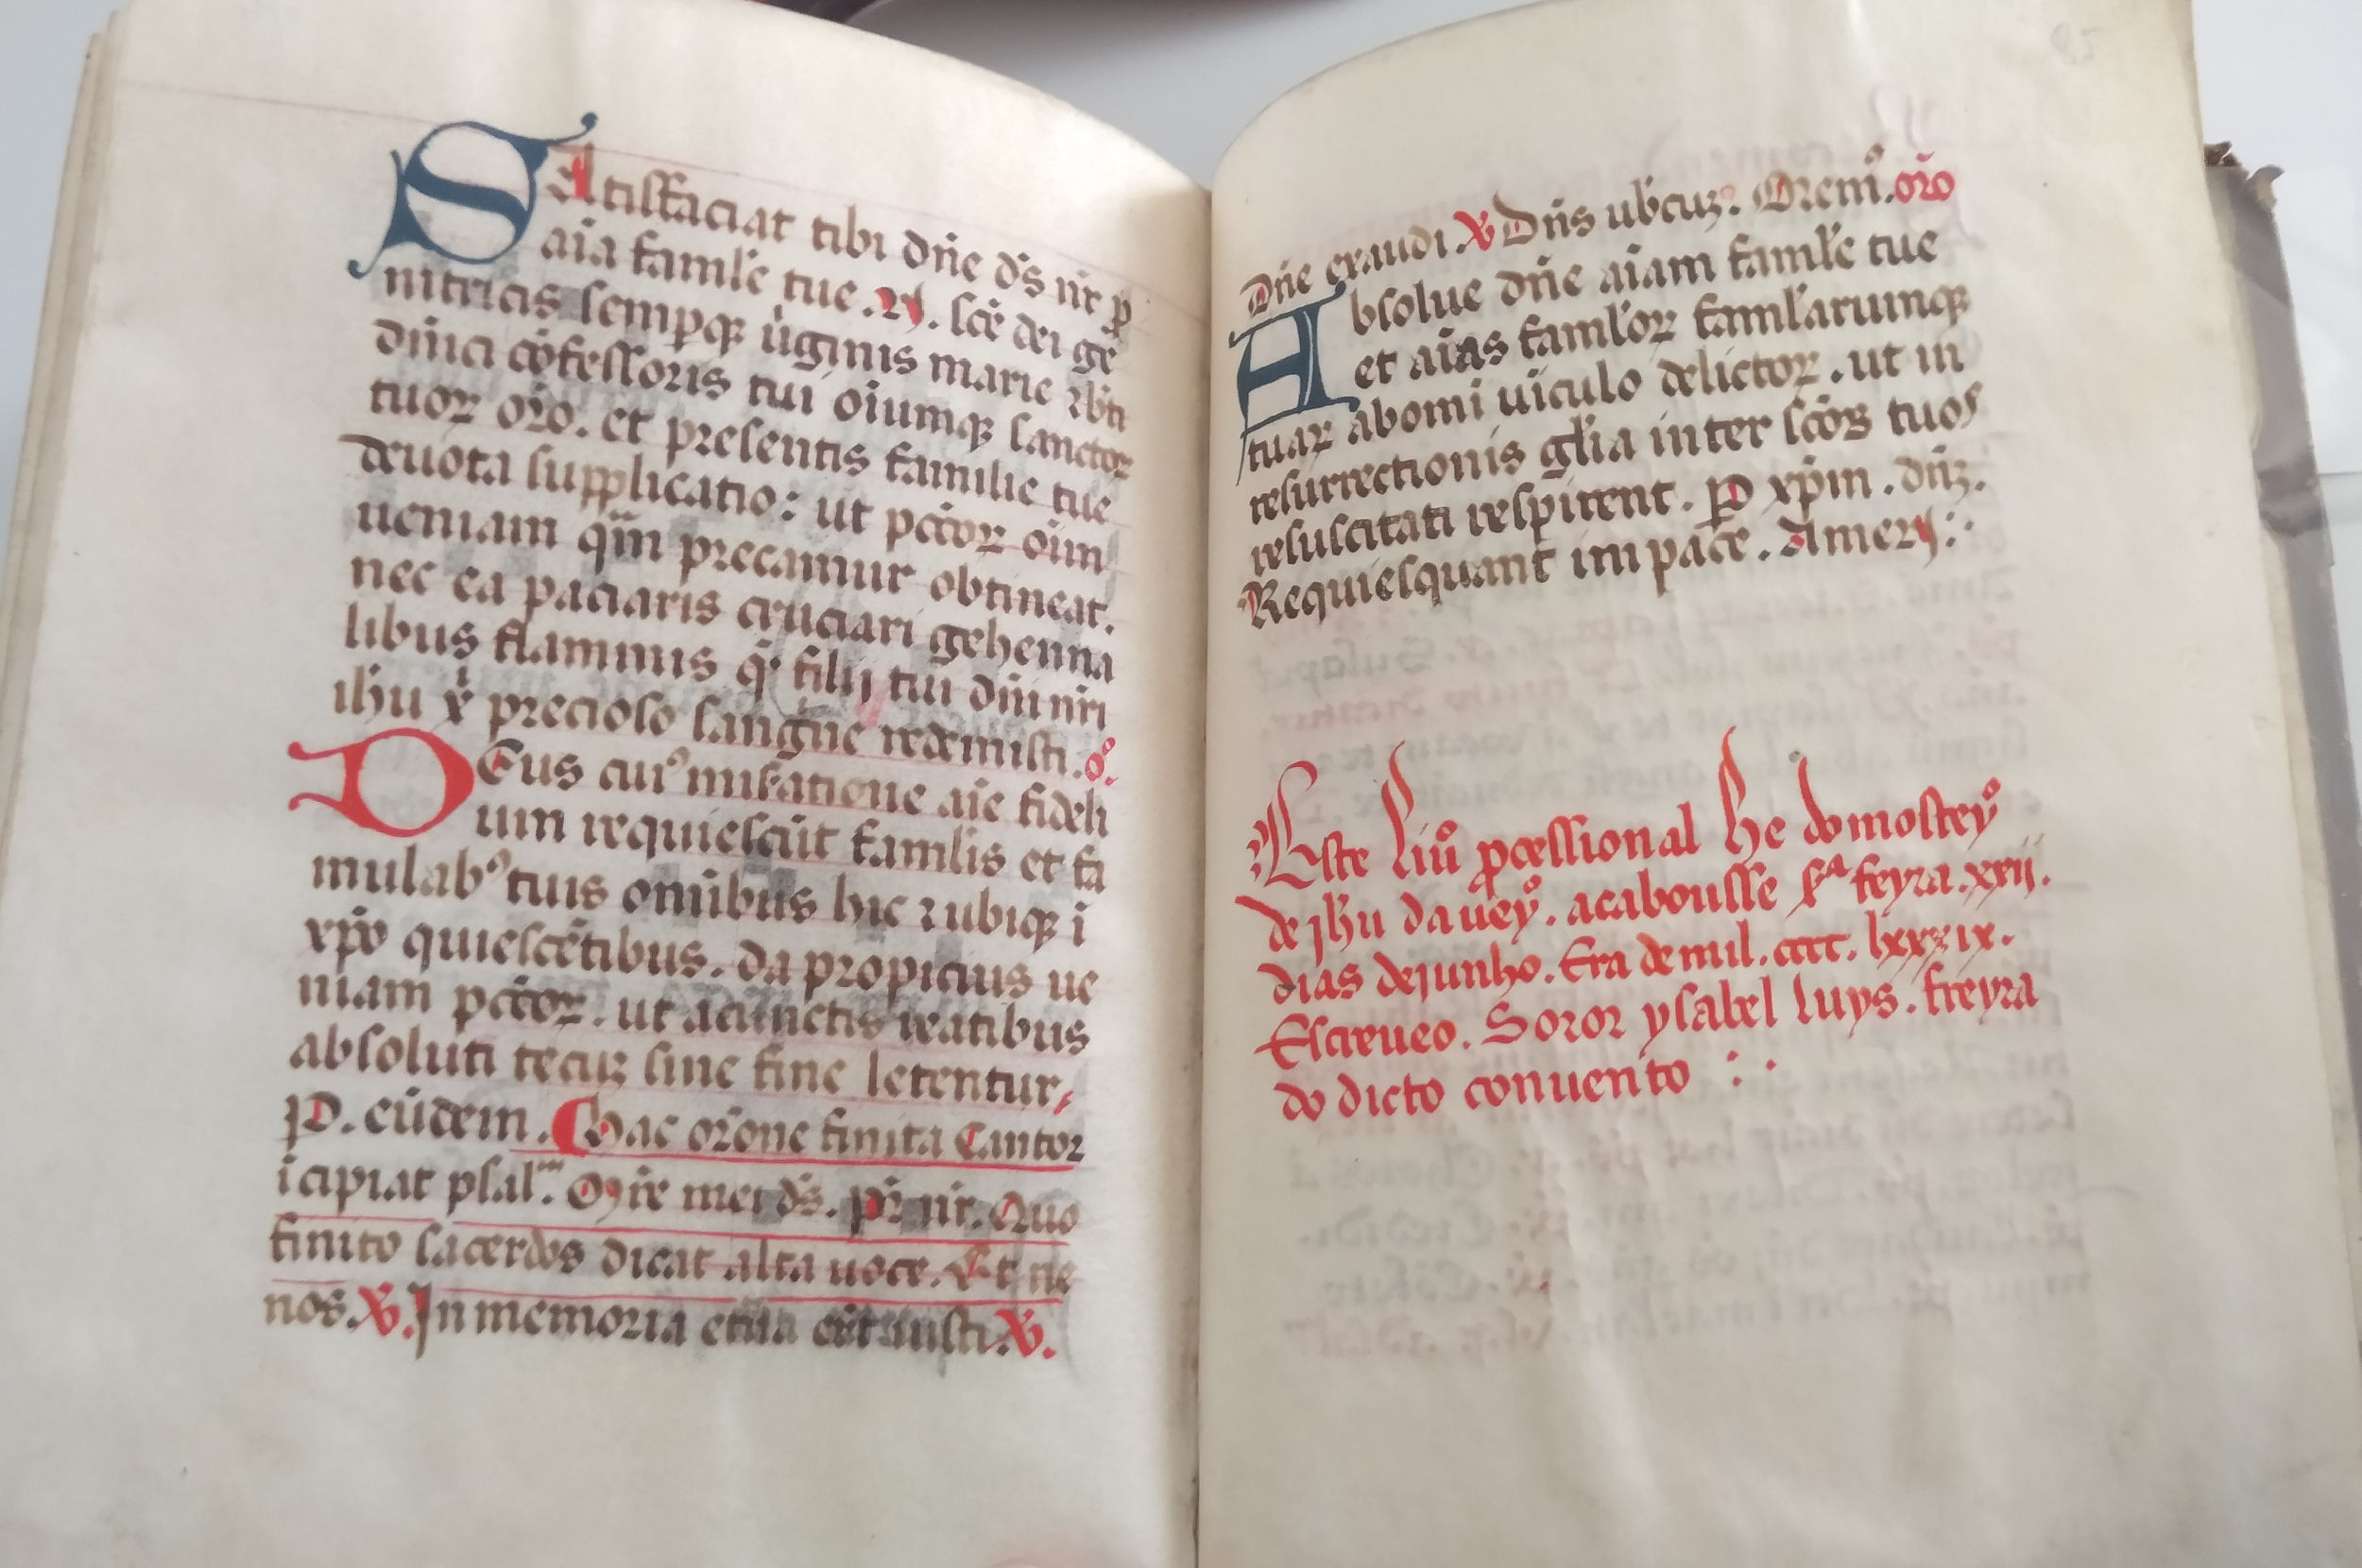 SAtisfaciat tibi dn̄e d̄s nr̄ ꝓ
aīa famłe tue .N. sc̄e dei ge
nitricis semꝑqꝫ ůginis marie ⁊ btī
dm̄ici cōfessoris tui oīumqꝫ sanctoꝝ
tuoꝝ or̄o. et presentis familie tue
deuota supplicatio: ut pct̄oꝝ oīm
ueniam qm̄ precamur obtineat.
nec ea paciaris cruciari gehenna
libus flammis q̄ filij tui dn̄i nr̄i
ih̄u x̄ precioso sangue redemisti. o̊.
DEus cuiꝰ miẜatione aīe fideli
um requiescūt famlis et fa
mulabꝰ tuis omībus hic ⁊ ubiqꝫ ī
xp̄o quiescētibus. da propicius ue
niam pct̄oꝝ. ut acunctis reatibus
absoluti tecuꝫ sine fine letentur,
P. eūdem. Hac or̄one finita Cantor
īcipiat psal.ᵐ Misr̄e mei d̄s. Pr̄ nr̄. Quo
finito sacerdos dicat alta uoce. Et ne
nos. ℣. In memoria et̄na er̄it iusti. ℣.
85
Dn̄e exaudi. ℣ Dn̄s ubcuꝫ. Oremꝰ. or̄o
Absolue dn̄e aīam famłe tue
et aīas famłoꝝ famłarumqꝫ
tuaꝝ abomi uīculo delictoꝝ. ut in
resurrectionis głia inter sc̄os tuos
resuscitati respirent. P xp̄m. dn̄ꝫ.
Requiesquant im pace. Amen:·
Este liuº ꝓcessional he do mosteyº
de jh̄u daueyº. acabousse sª feyra .xxij.
dias dejunho. Era de mil. cccc. lxxxix.
Escreueo. Soror ysabel luys. freyra
do dicto conuento :·